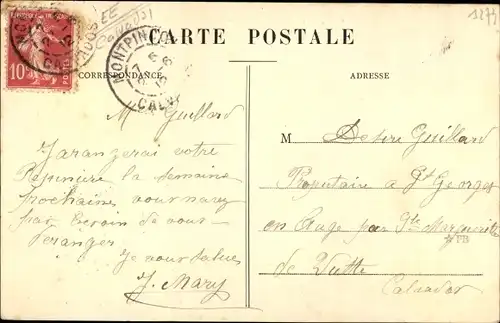 1274
CARTE POSTALE
CORRESPONDANCE
ADRESSE
10
POSTES
MONTPIN
7 6
15-6
CALV
Mr Guillard
Jarangerai votre
Pepiniere la semaine
prochaine vous navez
pas besoin de vous
deranger
Je vous salue
J. Mary
M Desire Guillard
Propietaire a St Georges
en Auge par Ste Marguerite
de Viette
Calvados